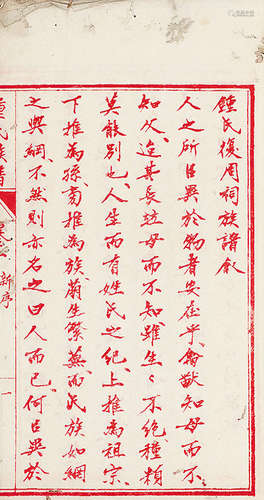 鍾氏復周祠族譜敘
人之所㠯異於物者安在乎禽獣知母而不
知父迨其長竝母而不知雖生〻不絕種類
莫能別也人生而有姓氏之紀上推為祖宗
下推為孫蔔推為族蔚生繁蕪而氏族如網
之與綱不然則亦名之曰人而已何㠯異於
鍾氏族譜
新序
一